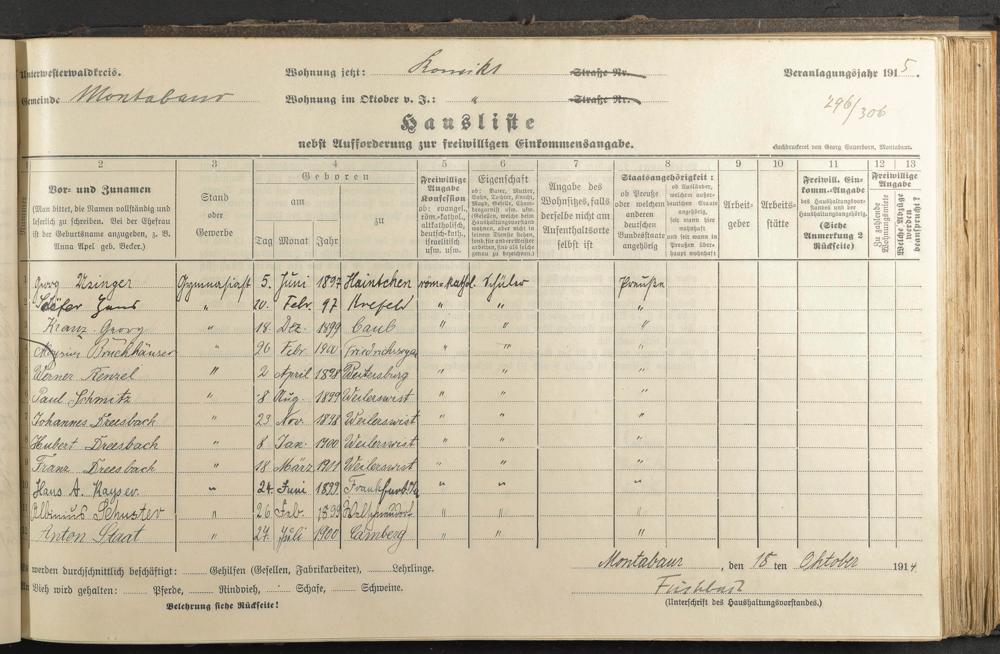 Unterwesterwaldkreis. Wohnung jetzt: Konvikt Straße Nr. Veranlagungsjahr 1915.
Gemeinde Montabaur Wohnung im Oktober v. J.: " Straße Nr.
296/306
Hausliste
nebst Aufforderung zur freiwilligen Einkommensangabe.
Buchdruckerei von Georg Sauerborn, Montabaur.
2 3 4 5 6 7 8 9 10 11 12 13
Vor- und Zunamen
(Man bittet, die Namen vollständig und
leserlich zu schreiben. Bei der Ehefrau
ist der Geburtsname anzugeben, z. B.
Anna Apel geb. Becker.)
Stand
oder
Gewerbe
Geboren
am zu
Tag Monat Jahr
Freiwillige
Angabe
Konfession
ob: evangel.,
röm.-kathol.,
altkatholisch,
deutsch-kath.,
israelitisch
usw. usw.
Eigenschaft
ob: Vater, Mutter,
Sohn, Tochter, Knecht,
Magd, Geselle,
Angabe des
Wohnsitzes, falls
derselbe nicht am
Aufenthaltsorte
selbst ist
Staatsangehörigkeit:
ob Preuße
oder welchem
anderen
deutschen
Bundesstaate
angehörig
ob Ausländer,
welchem außer-
deutschen Staate
angehörig,
seit wann hier
wohnhaft
und seit wann in
Preußen über-
haupt wohnhaft:
Arbeit-
geber
Arbeits-
stätte
Freiwill. Ein-
komm.-Angabe
des Haushaltungsvor-
standes und der
Haushaltungsangehörig.
(Siehe
Anmerkung 2
Rückseite)
Freiwillige
Angabe
Zu zahlende
Wohnungsmiete
Welche Abzüge
werden
beansprucht?
Georg Usinger Gymnasiast 5. Juni 1897 Haintchen röm-kathol. Schüler Preuße
Schäfer Hans " 20. Febr. 97 Krefeld " " "
Kranz Georg " 18. Dez. 1899 Caub " " "
Aloysius Bruchhäuser " 26 Febr. 1900 " " "
Werner Kenzel " 2 April 1898 Weitersburg " " "
Paul Schmitz " 8 Aug. 1899 Weilerswist " " "
Johannes Dreesbach " 23 Nov. 1898 Weilerswist " " "
Hubert Dreesbach " 8 Jan. 1900 Weilerswist " " "
Franz Dreesbach " 18 März 1901 Weilerswist " " "
Hans A. Kayser. " 24. Juni 1899 " " "
Albinus Schuster " 26 Feb. 1899 " " "
Anton Staat " 27. Juli 1900 Camberg " " "
werden durchschnittlich beschäftigt: Gehilfen (Gesellen, Fabrikarbeiter), Lehrlinge.
Vieh wird gehalten: Pferde, Rindvieh, Schafe, Schweine.
Belehrung siehe Rückseite!
Montabaur, den 15 ten Oktober 1914
(Unterschrift des Haushaltungsvorstandes.)